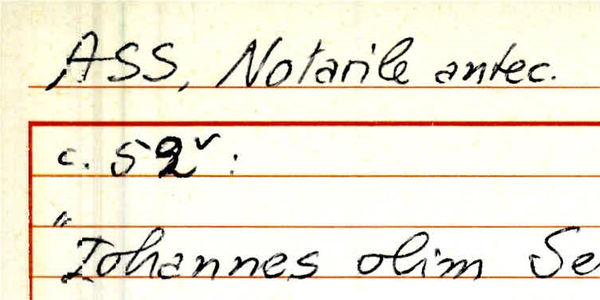 ASS, Notarile antec.
c. 52v:
"Iohannes olim Se